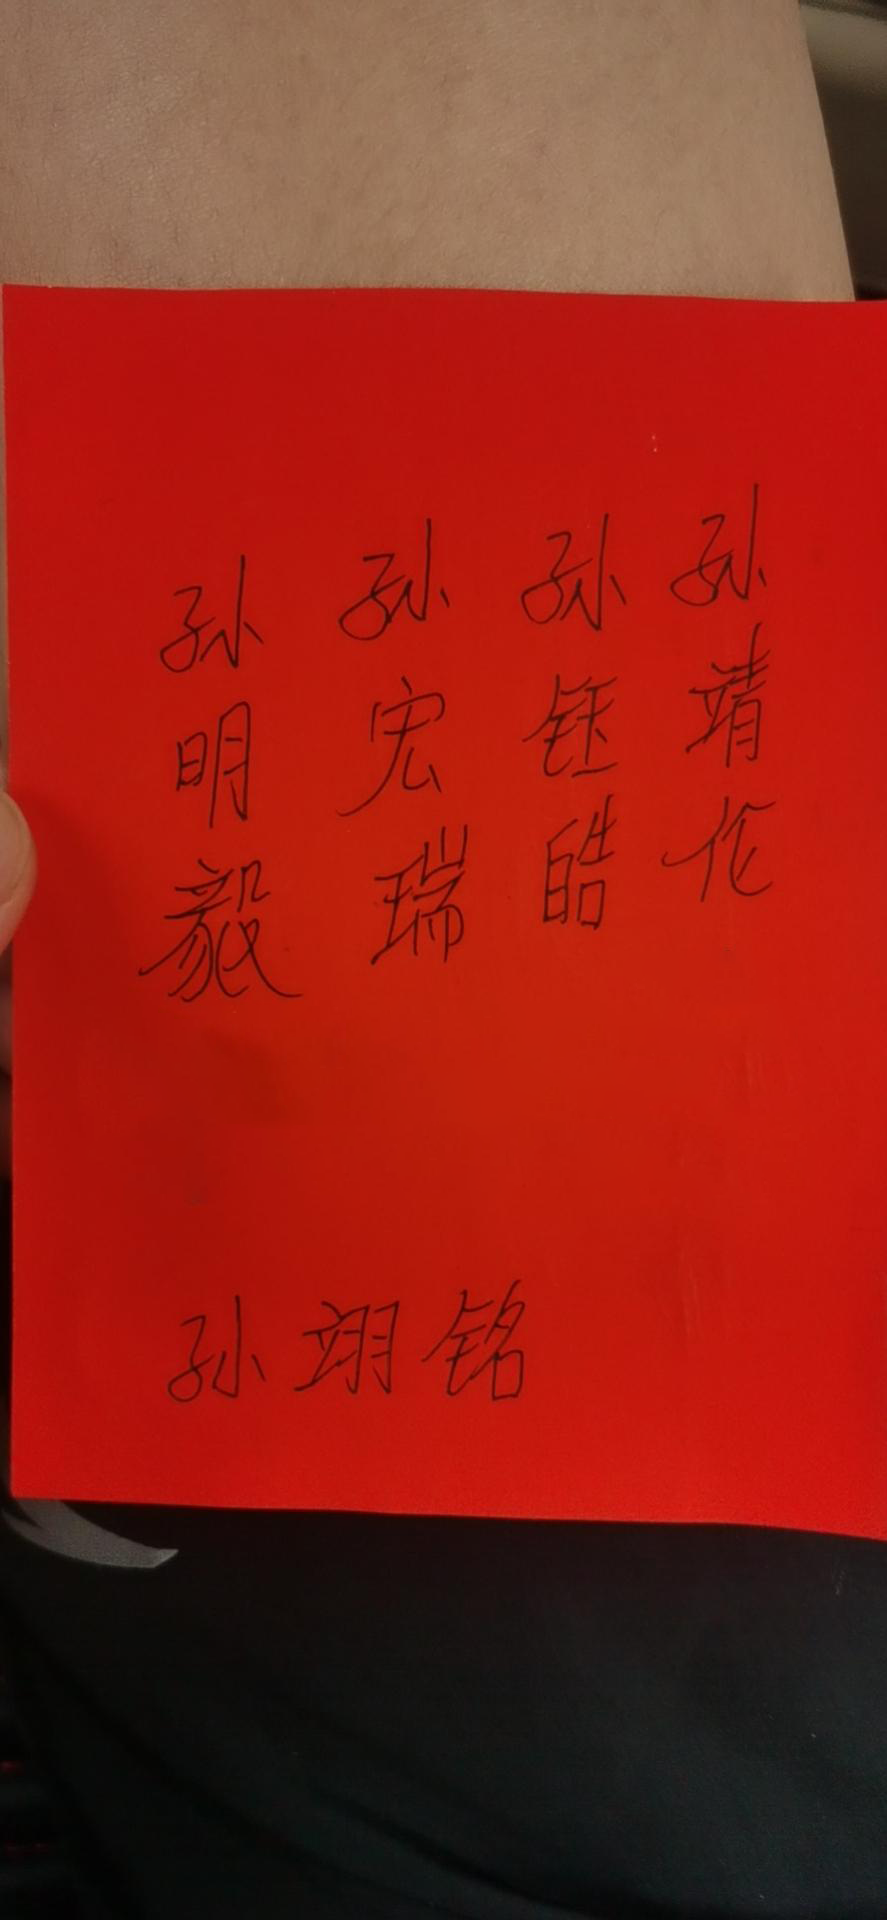 孙靖伦
孙钰皓
孙宏瑞
孙明毅
孙翊铭